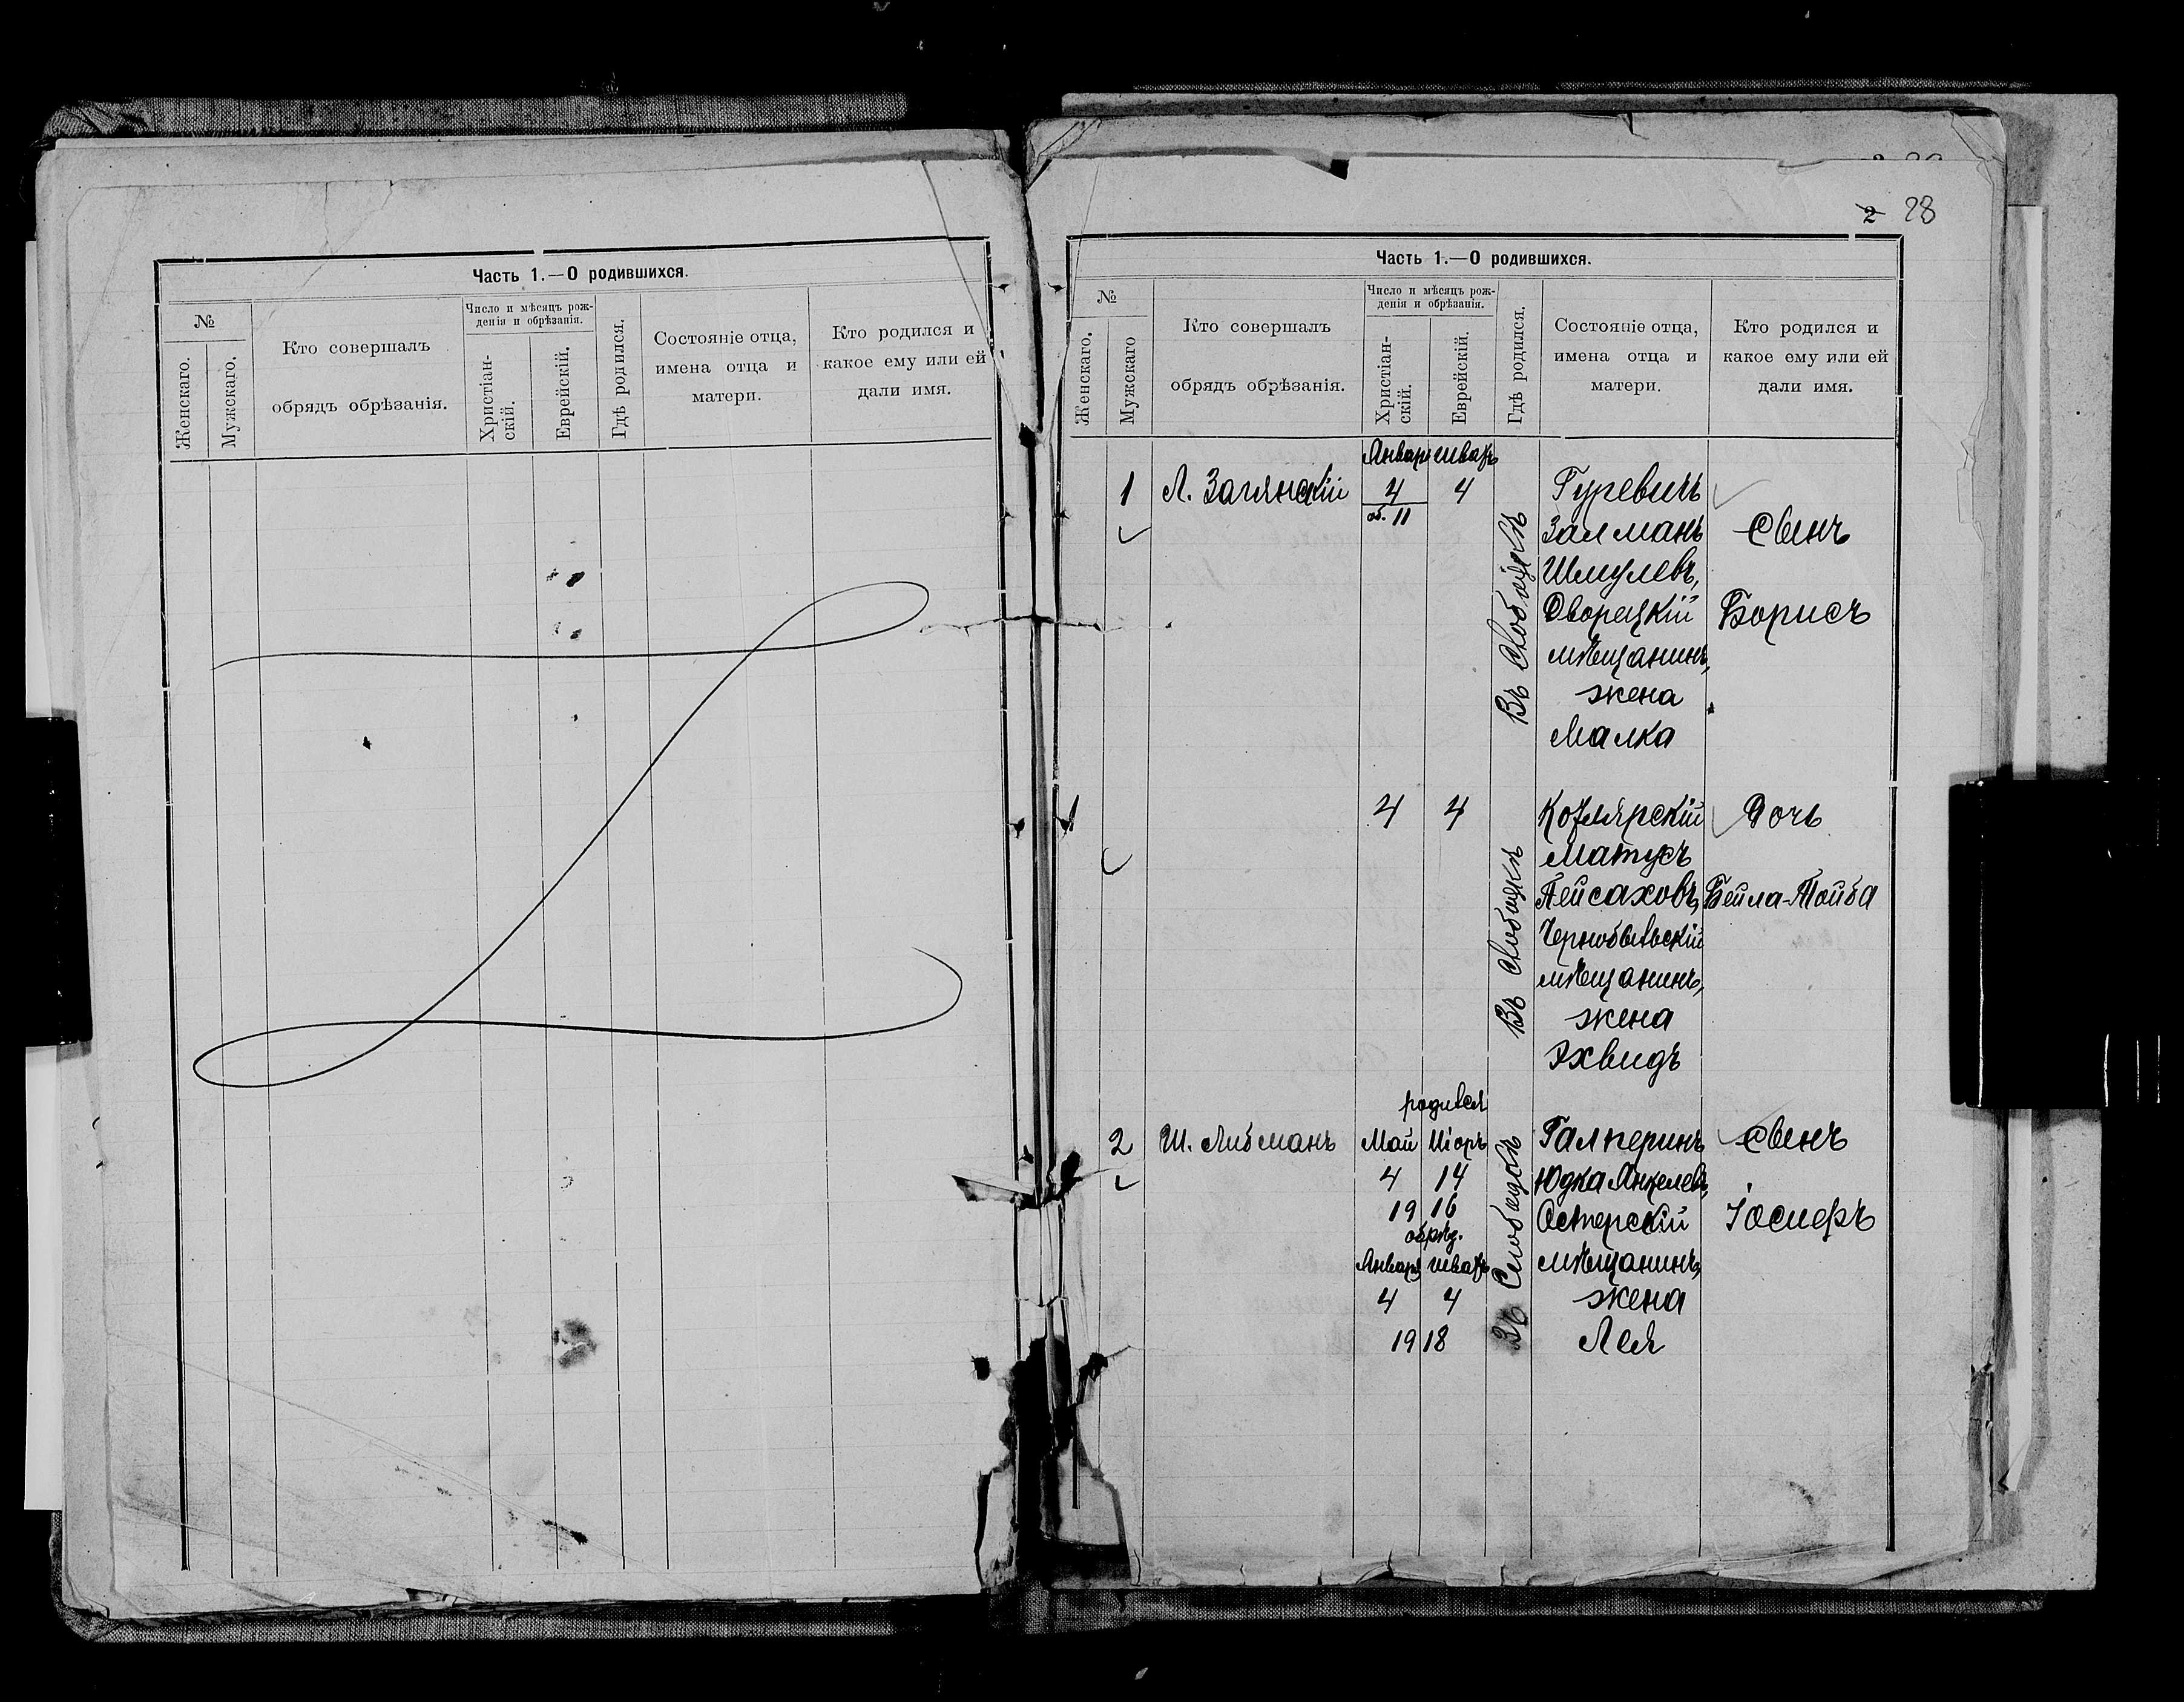 Часть 1.—О родившихся.
№
Женскаго.
Мужскаго.
Кто совершалъ
обрядъ обрѣзанія.
Число и мѣсяцъ рож-
денія и обрѣзанія.
Христіан-
скій.
Еврейскій.
Гдѣ родился.
Состояніе отца,
имена отца и
матери.
Кто родился и
какое ему или ей
дали имя.
2 28
Часть 1.—О родившихся.
№
Женскаго.
Мужскаго
Кто совершалъ
обрядъ обрѣзанія.
Число и мѣсяцъ рож-
денія и обрѣзанія.
Христіан-
скій.
Еврейскій.
Гдѣ родился.
Состояніе отца,
имена отца и
матери.
Кто родился и
какое ему или ей
дали имя.
Январ шватъ
1 Л. Заглнскій 4 4 Гуревичъ
об. 11
Въ Слободкѣ
Залманъ Сынъ
Шмулевъ,
Дворецкій Борисъ
мѣщанинъ,
жена
Малка
1 4 4 Котлярскій Дочь
Въ Слободкѣ
Матусъ
Пейсаховъ, Бейла-Тойба
Чернобыльскій
мѣщанинъ,
жена
Эхвидъ
родился
2 Ш. Либманъ Май Иіоръ Галперинъ Сынъ
4 14 Юдка Янкелевъ,
19 16 Остерскій Іосифъ
обрѣз.
Въ Слободкѣ
Январь шватъ мѣщанинъ,
4 4 жена
19 18 Лея